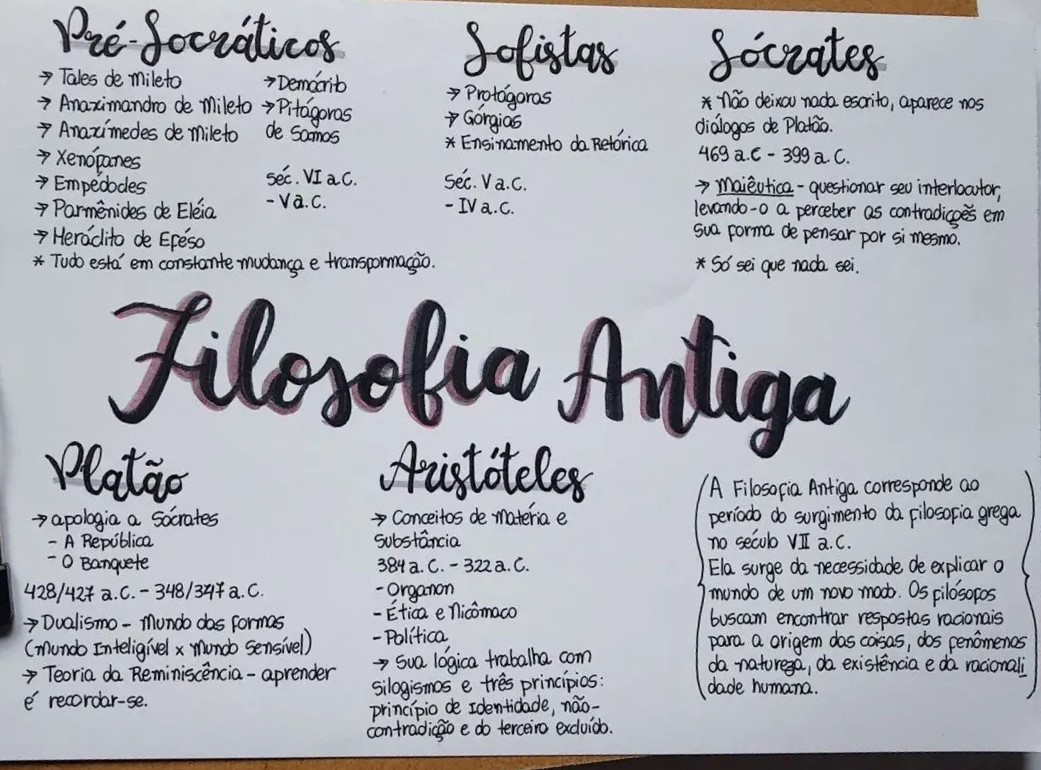 Pré-Socráticos
→ Tales de Mileto
→ Anaximandro de Mileto
→ Anaxímedes de Mileto
→ Xenófanes
→ Empédocles
→ Parmênides de Eléia
→ Heráclito de Eféso
→ Demócrito
→ Pitágoras
de Samos
séc. VI a.C.
- V a.C.
* Tudo está em constante mudança e transformação.
Sofistas
→ Protágoras
→ Górgias
* Ensinamento da Retórica
Séc. V a.C.
- IV a.C.
Sócrates
* Não deixou nada escrito, aparece nos
diálogos de Platão.
469 a.C - 399 a.C.
→ Maiêutica - questionar seu interlocutor,
levando-o a perceber as contradições em
sua forma de pensar por si mesmo.
* Só sei que nada sei.
Filosofia Antiga
Platão
→ apologia a Sócrates
- A República
- O Banquete
428/427 a.C. - 348/347 a.C.
→ Dualismo - Mundo das formas
(mundo Inteligível x mundo Sensível)
→ Teoria da Reminiscência - aprender
é recordar-se.
Aristóteles
→ Conceitos de Matéria e
Substância
384 a.C. - 322 a.C.
- Organon
- Ética e Nicômaco
- Política
→ Sua lógica trabalha com
silogismos e três princípios:
princípio de Identidade, não-
contradição e do terceiro excluído.
A Filosofia Antiga corresponde ao
período do surgimento da filosofia grega
no século VII a.C.
Ela surge da necessidade de explicar o
mundo de um novo modo. Os filósofos
buscam encontrar respostas racionais
para a origem das coisas, dos fenômenos
da natureza, da existência e da racionali
dade humana.